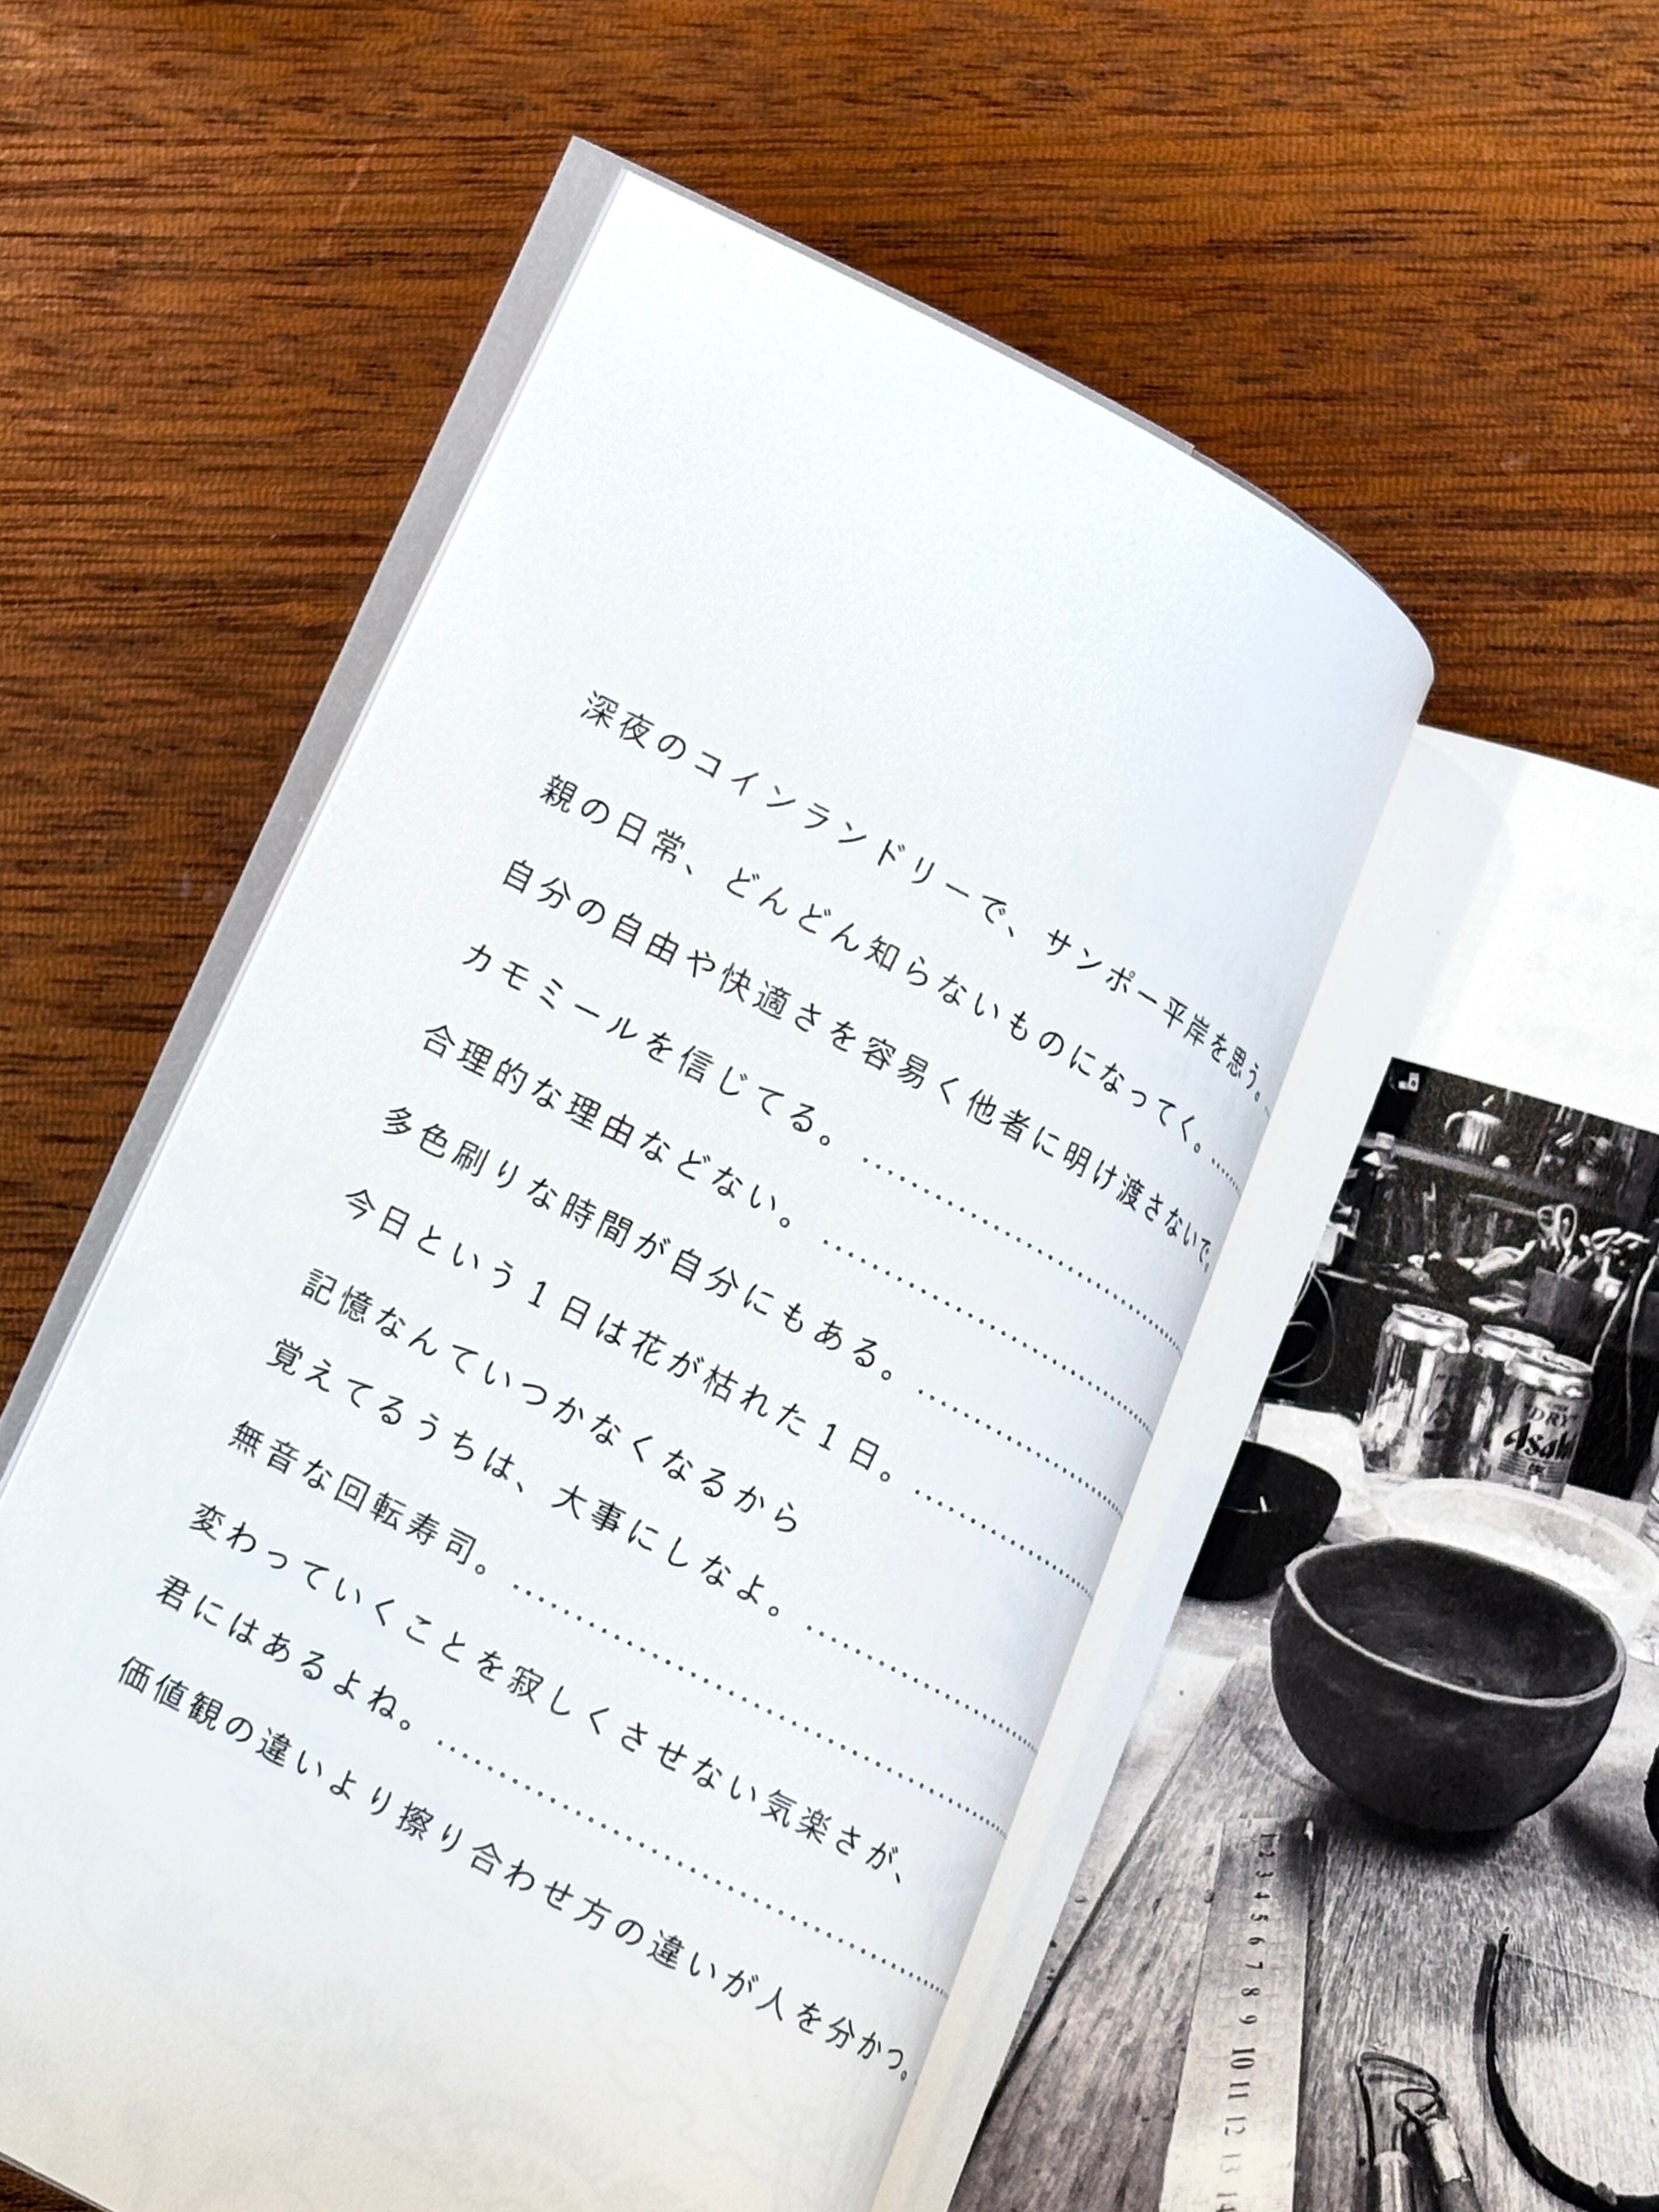 深夜のコインランドリーで、サンポー平岸を思う。
親の日常、どんどん知らないものになってく。
自分の自由や快適さを容易く他者に明け渡さないで。
カモミールを信じてる。
合理的な理由などない。
多色刷りな時間が自分にもある。
今日という1日は花が枯れた1日。
記憶なんていつかなくなるから
覚えてるうちは、大事にしなよ。
無音な回転寿司。
変わっていくことを寂しくさせない気楽さが、
君にはあるよね。
価値観の違いより擦り合わせ方の違いが人を分かつ。
DRY
Asahi
1 2 3 4 5 6 7 8 9 10 11 12 13 14